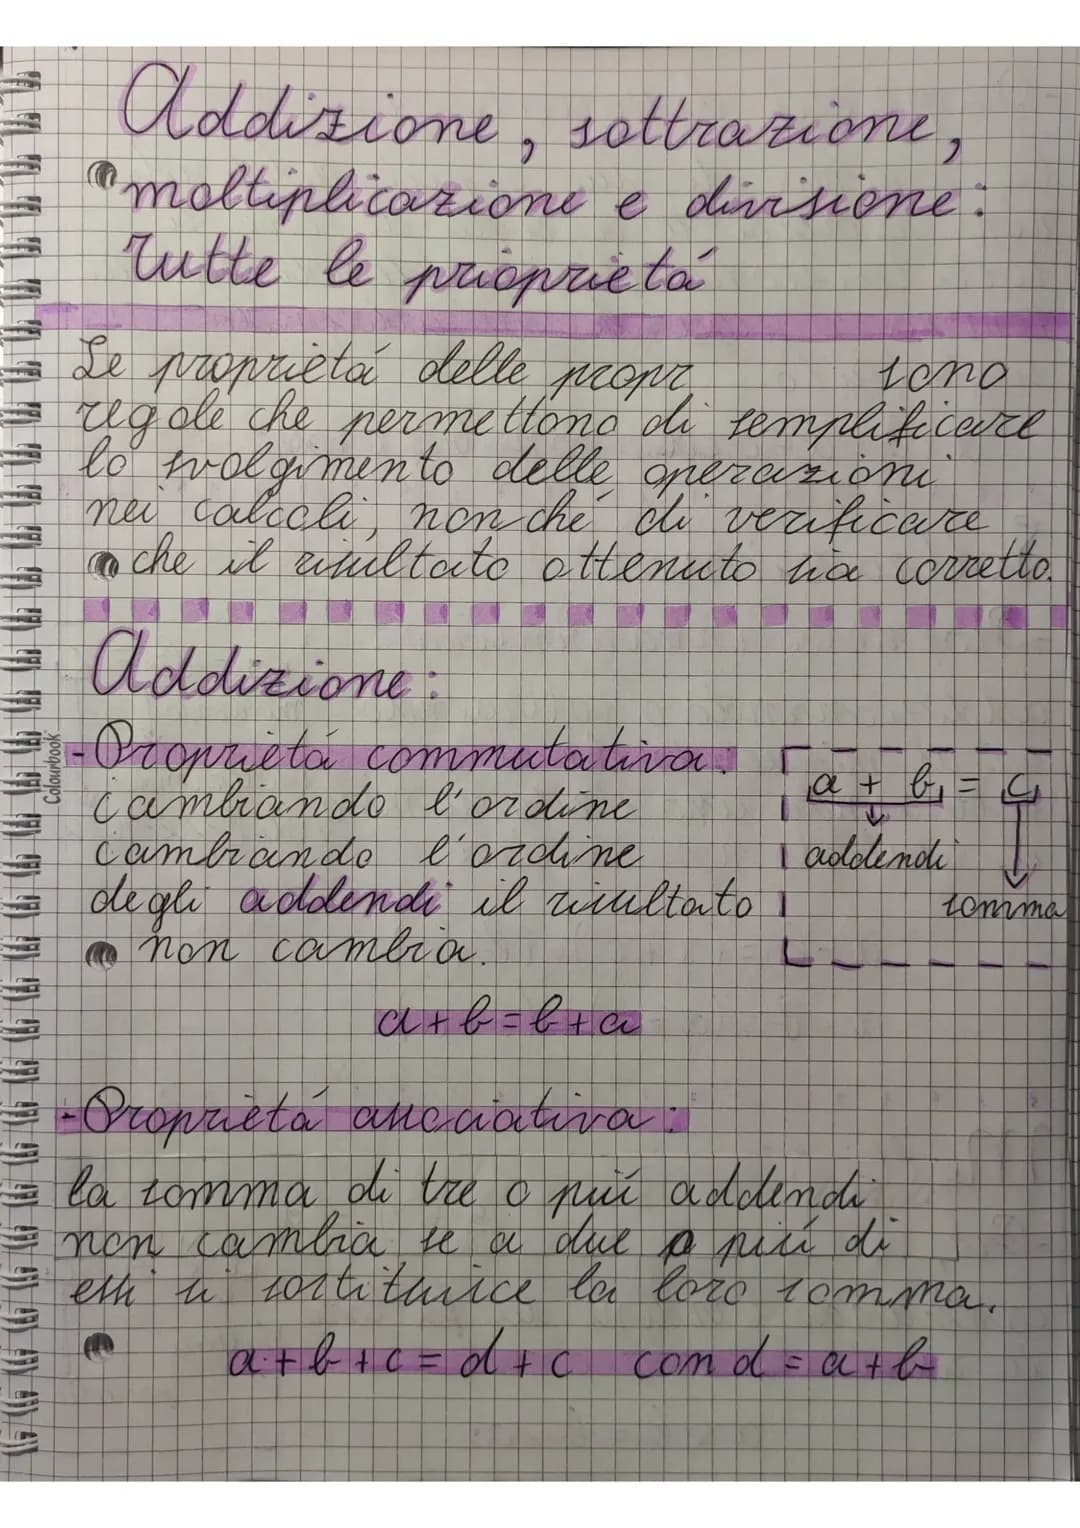 Addizione, sottrazione,
moltiplicazione e divisione:
Tutte le prioprietá
Le proprietá delle propr sono
regole che permettono di semplificare
lo svolgimento delle operazioni
nei calcoli, nonché di verificare
che il risultato ottenuto sia corretto.
Addizione:
- Proprietá commutativa:
cambiando l'ordine
cambiando l'ordine
degli addendi il risultato
non cambia.
a + b = c
addendi
somma
a + b = b + a
- Proprietá associativa:
la somma di tre o piú addendi
non cambia se a due o piú di
essi si sostituisce la loro somma.
a + b + c = d + c con d = a + b
Colourbook